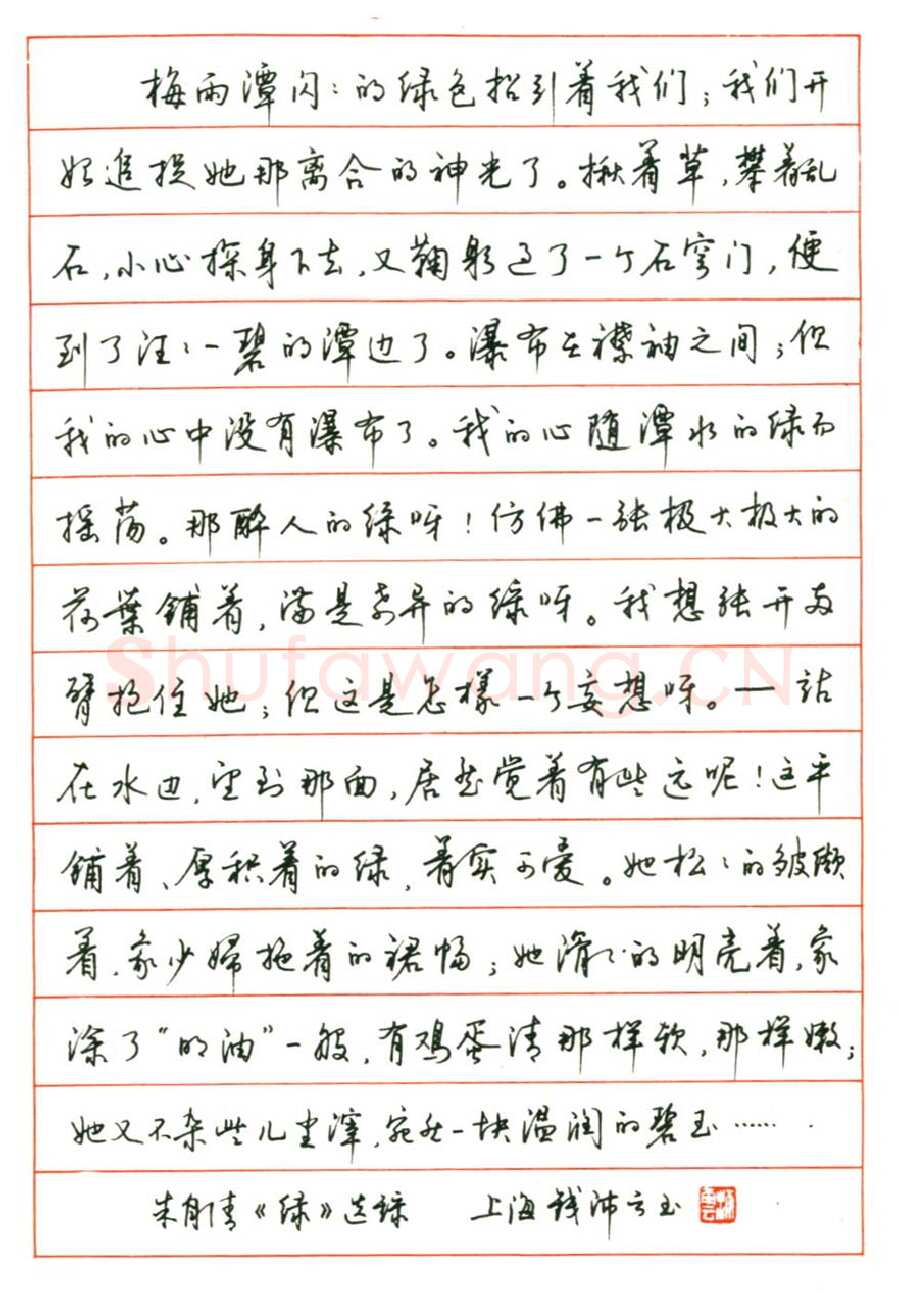 梅雨潭闪：的绿色招引着我们；我们开
始追捉她那离合的神光了。揪着草，攀着乱
石，小心探身下去，又鞠躬过了一个石穹门，便
到了汪：一碧的潭边了。瀑布在襟袖之间；但
我的心中没有瀑布了。我的心随潭水的绿而
摇荡。那醉人的绿呀！仿佛一张极大极大的
荷葉铺着，满是奇异的绿呀。我想张开两
臂抱住她；但这是怎樣一个妄想呀。——站
在水边，望到那面，居然觉着有些远呢！这平
铺着、厚积着的绿，着实可爱。她松：的皱缬
着，象少婦拖着的裙幅；她滑：的明亮着，象
涂了“明油”一般，有鸡蛋清那样软，那样嫩；
她又不杂些儿尘滓，宛然一块温润的碧玉……
朱自清《绿》选录 上海钱沛云书
Shufawang.CN